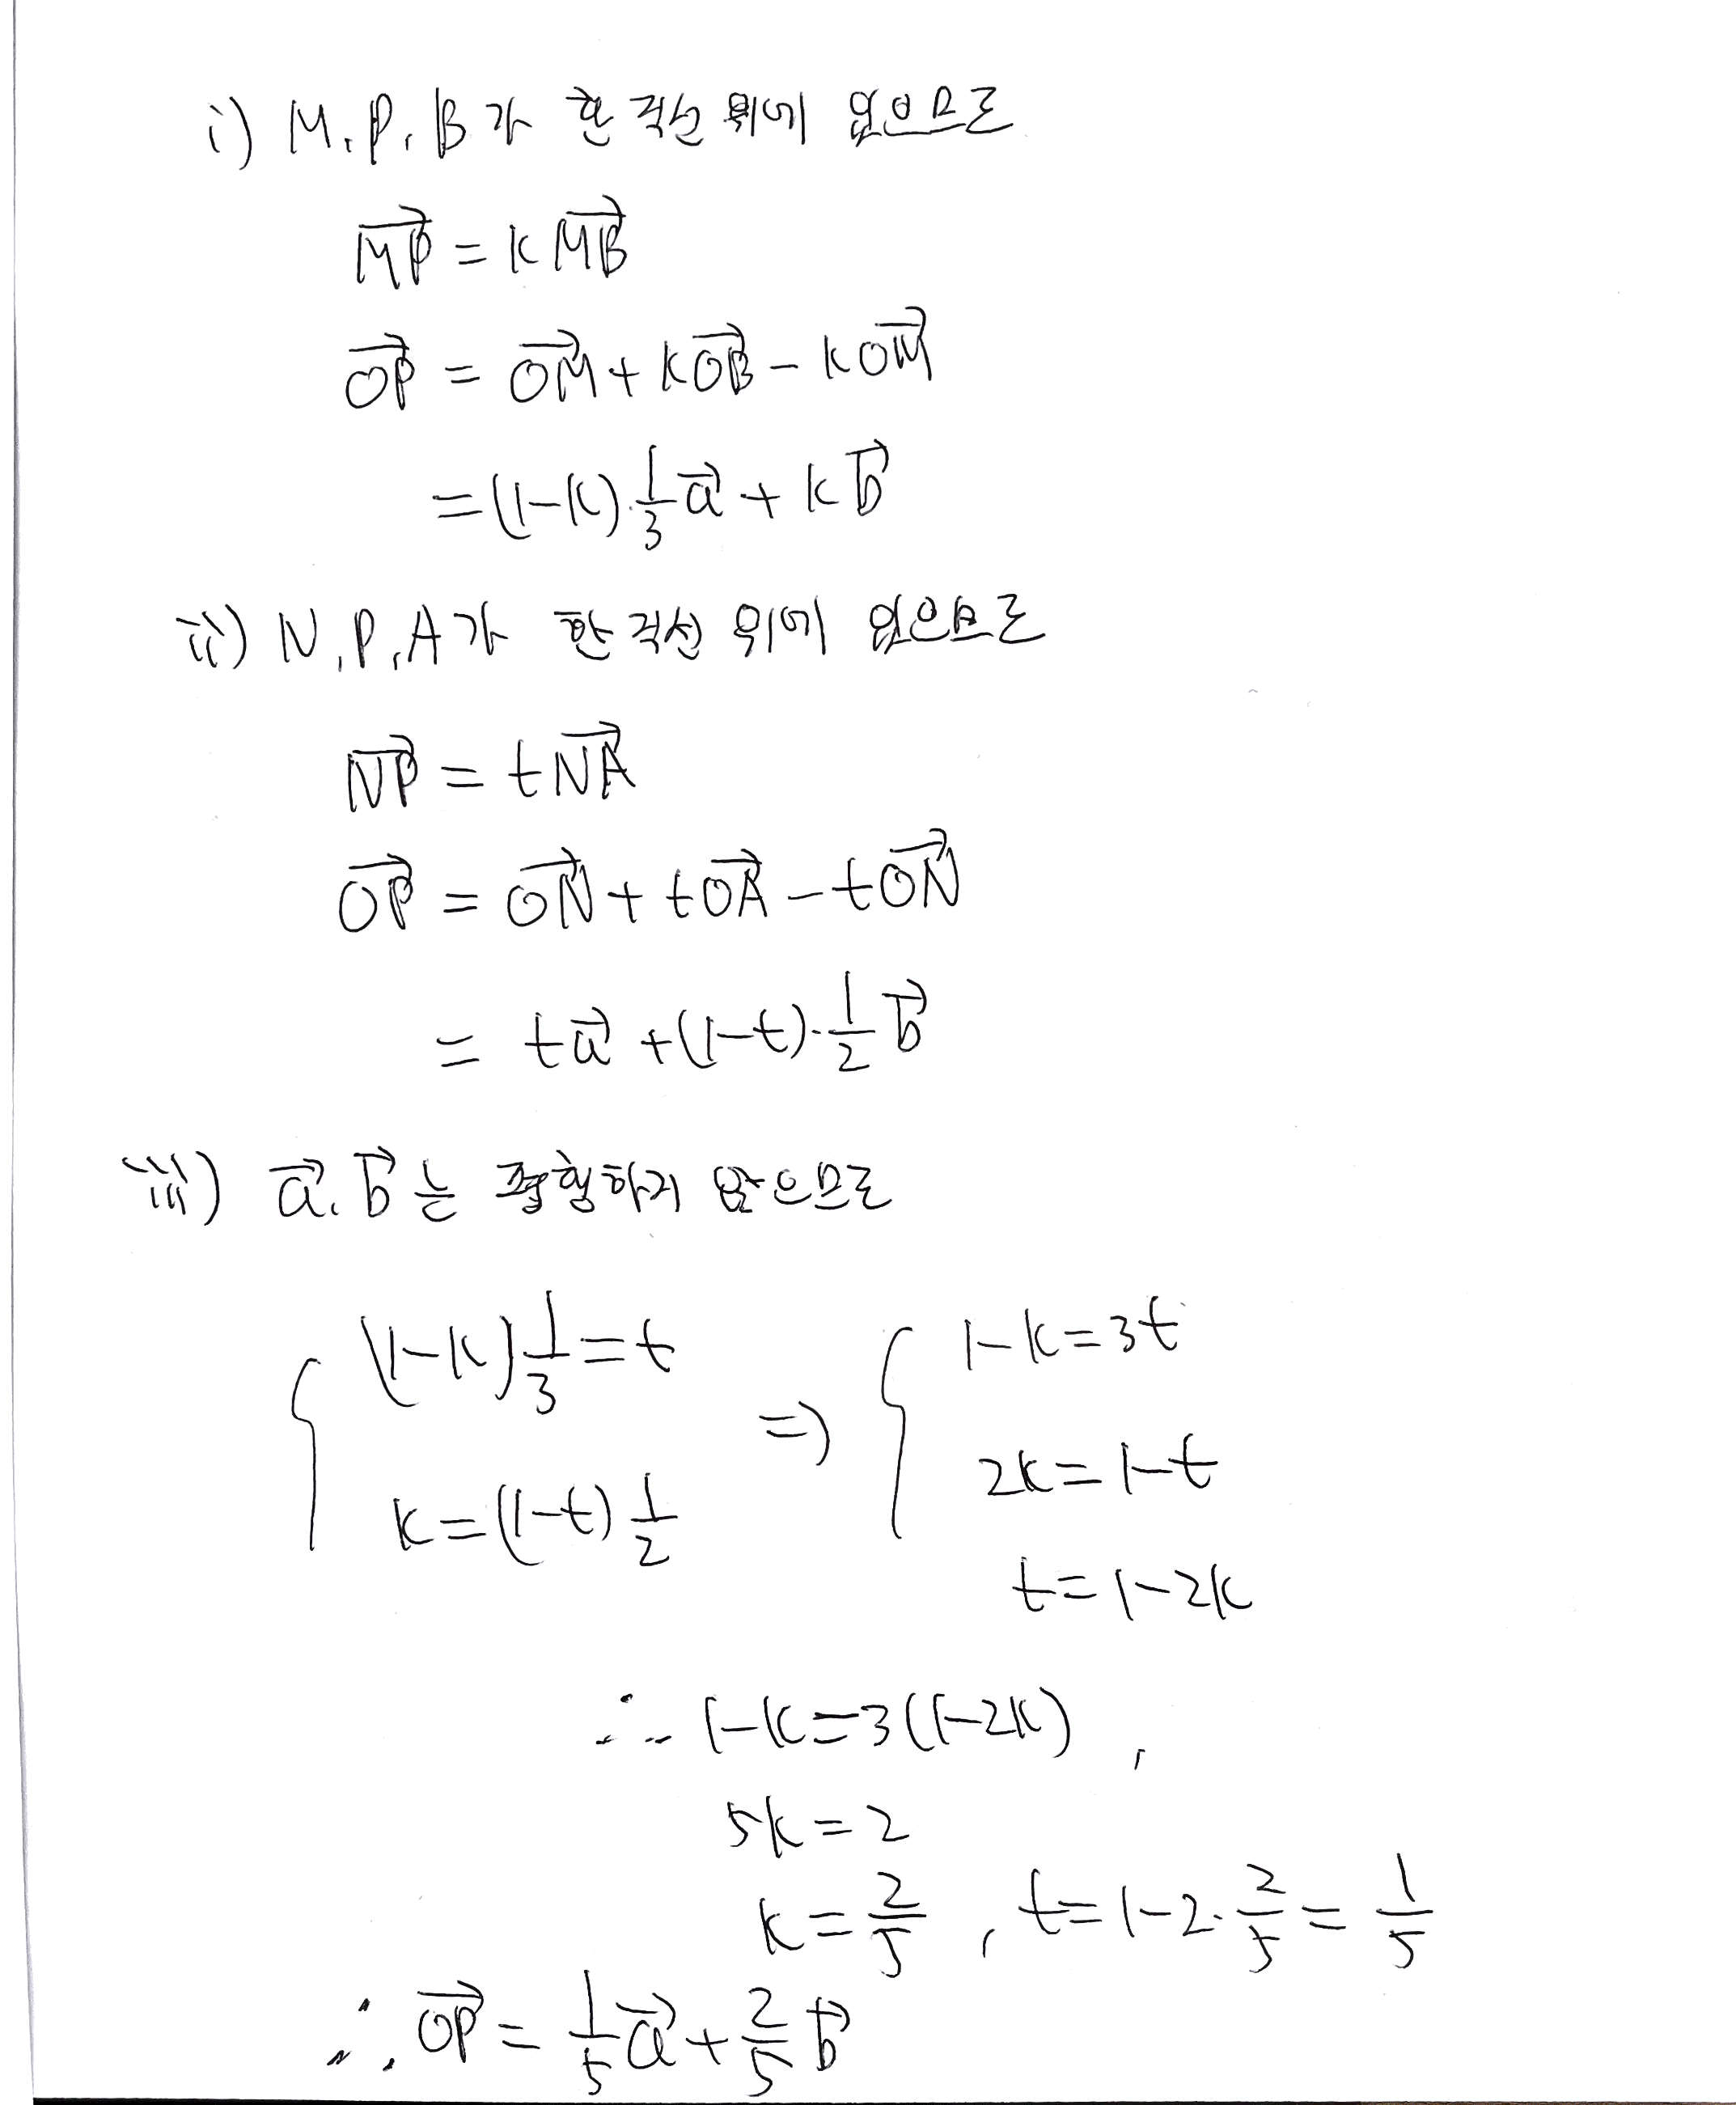 i) M, P, B가 한 직선 위에 있으므로
\overrightarrow{MP} = k\overrightarrow{MB}
\overrightarrow{OP} = \overrightarrow{OM} + k\overrightarrow{OB} - k\overrightarrow{OM}
= (1-k)·\frac{1}{3}\vec{a} + k\vec{b}
ii) N, P, A가 한 직선 위에 있으므로
\overrightarrow{NP} = t\overrightarrow{NA}
\overrightarrow{OP} = \overrightarrow{ON} + t\overrightarrow{OA} - t\overrightarrow{ON}
= t\vec{a} + (1-t)·\frac{1}{2}\vec{b}
iii) \vec{a}, \vec{b}는 평행하지 않으므로
(1-k)\frac{1}{3} = t
k = (1-t)\frac{1}{2}
⇒
1-k = 3t
2k = 1-t
t = 1-2k
∴ 1-k = 3(1-2k),
5k = 2
k = \frac{2}{5}, t = 1-2·\frac{2}{5} = \frac{1}{5}
∴ \overrightarrow{OP} = \frac{1}{5}\vec{a} + \frac{2}{5}\vec{b}